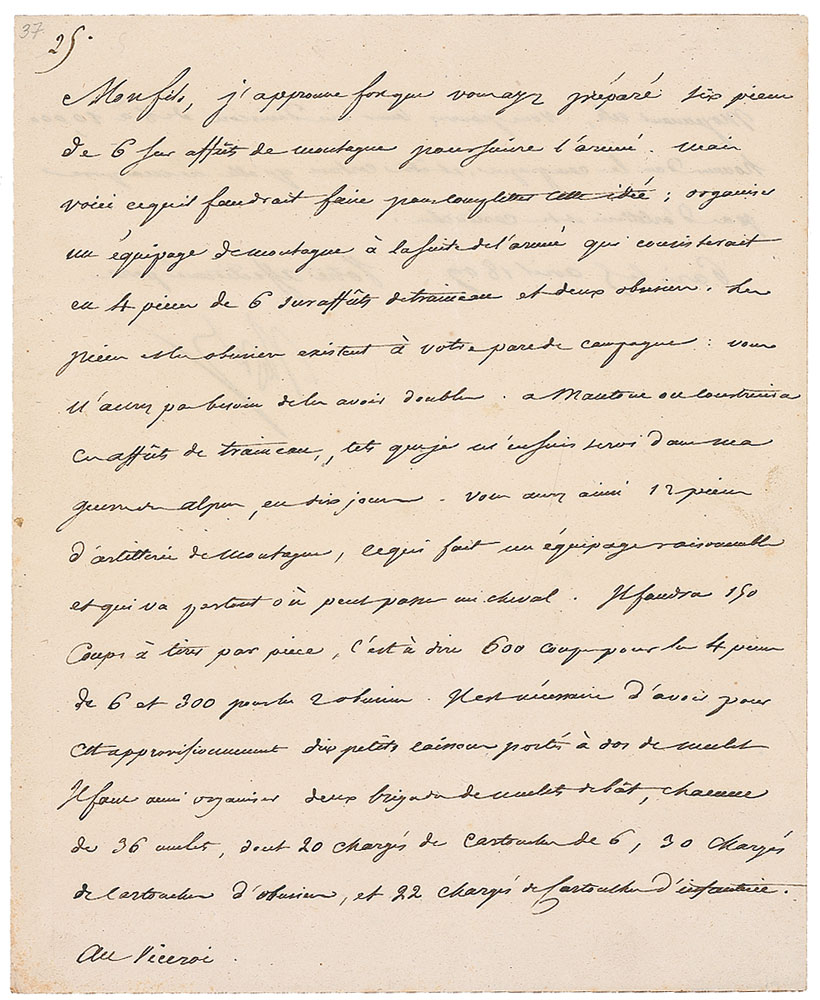 37
25.
Mon fils, j'approuve fort que vous ayez préparé six pièces
de 6 sur affûts de montagne pour suivre l'armée. Mais
voici ce qu'il faudrait faire pour completter cette idée ; organiser
un équipage de montagne à la suite de l'armée qui consisterait
en 4 pièces de 6 sur affûts de traineau et deux obusiers. Les
pièces et les obusiers existent à votre parc de campagne : vous
n'aurez pas besoin de les avoir doubles. a Mantoue on construira
ces affûts de traineau, tels que je m'en suis servi dans ma
guerre des alpes, en dix jours. Vous aurez ainsi 12 pièces
d'artillerie de montagne, ce qui fait un équipage raisonnable
et qui va partout où peut passer un cheval. Il faudra 150
Coups à tirer par pièce, c'est à dire 600 coups pour les 4 pièces
de 6 et 300 pour les 2 obusiers. Il est nécessaire d'avoir pour
cet approvisionnement dix petits caissons portés à dos de mulet
Il faut aussi organiser deux brigades de mulets de bât, chacune
de 36 mulets, dont 20 chargés de Cartouches de 6, 30 chargés
de Cartouches d'obusiers, et 22 chargés de Cartouches d'infanterie.
Au Viceroi.